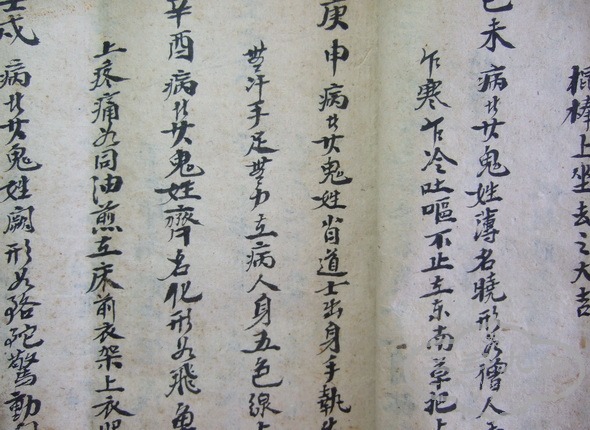 棍棒上坐去之大吉
己未 病 女鬼姓薄名曉形 僧人
乍寒乍冷吐嘔不止在东南草
庚申 病 女鬼姓 道士出身手執
汗手足 力在病人身五色線上
辛酉 病 女鬼姓齊名化形 飛魚
上疼痛 同油煎在床前衣架上衣
壬戌 病 女鬼姓 形 骆驼驚動